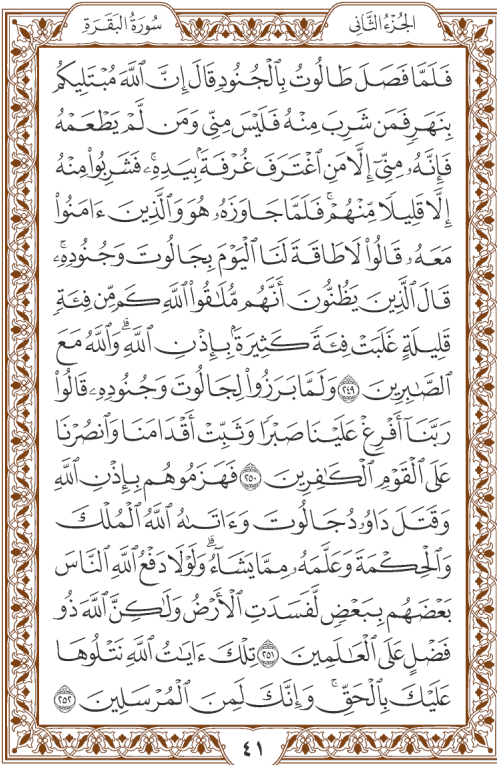 الجزء الثاني
سورة البقرة
فَلَمَّا فَصَلَ طَالُوتُ بِٱلْجُنُودِ قَالَ إِنَّ ٱللَّهَ مُبْتَلِيكُم
بِنَهَرٍ فَمَن شَرِبَ مِنْهُ فَلَيْسَ مِنِّي وَمَن لَّمْ يَطْعَمْهُ
فَإِنَّهُۥ مِنِّيٓ إِلَّا مَنِ ٱغْتَرَفَ غُرْفَةَۢ بِيَدِهِۦۚ فَشَرِبُوا۟ مِنْهُ
إِلَّا قَلِيلًا مِّنْهُمْۚ فَلَمَّا جَاوَزَهُۥ هُوَ وَٱلَّذِينَ ءَامَنُوا۟
مَعَهُۥ قَالُوا۟ لَا طَاقَةَ لَنَا ٱلْيَوْمَ بِجَالُوتَ وَجُنُودِهِۦۚ
قَالَ ٱلَّذِينَ يَظُنُّونَ أَنَّهُم مُّلَـٰقُوا۟ ٱللَّهِ كَم مِّن فِئَةٍ
قَلِيلَةٍ غَلَبَتْ فِئَةً كَثِيرَةَۢ بِإِذْنِ ٱللَّهِۗ وَٱللَّهُ مَعَ
ٱلصَّـٰبِرِينَ ٢٤٩ وَلَمَّا بَرَزُوا۟ لِجَالُوتَ وَجُنُودِهِۦ قَالُوا۟
رَبَّنَآ أَفْرِغْ عَلَيْنَا صَبْرًا وَثَبِّتْ أَقْدَامَنَا وَٱنصُرْنَا
عَلَى ٱلْقَوْمِ ٱلْكَـٰفِرِينَ ٢٥٠ فَهَزَمُوهُم بِإِذْنِ ٱللَّهِ
وَقَتَلَ دَاوُۥدُ جَالُوتَ وَءَاتَىٰهُ ٱللَّهُ ٱلْمُلْكَ
وَٱلْحِكْمَةَ وَعَلَّمَهُۥ مِمَّا يَشَآءُۗ وَلَوْلَا دَفْعُ ٱللَّهِ ٱلنَّاسَ
بَعْضَهُم بِبَعْضٍ لَّفَسَدَتِ ٱلْأَرْضُ وَلَـٰكِنَّ ٱللَّهَ ذُو
فَضْلٍ عَلَى ٱلْعَـٰلَمِينَ ٢٥١ تِلْكَ ءَايَـٰتُ ٱللَّهِ نَتْلُوهَا
عَلَيْكَ بِٱلْحَقِّۚ وَإِنَّكَ لَمِنَ ٱلْمُرْسَلِينَ ٢٥٢
٤١